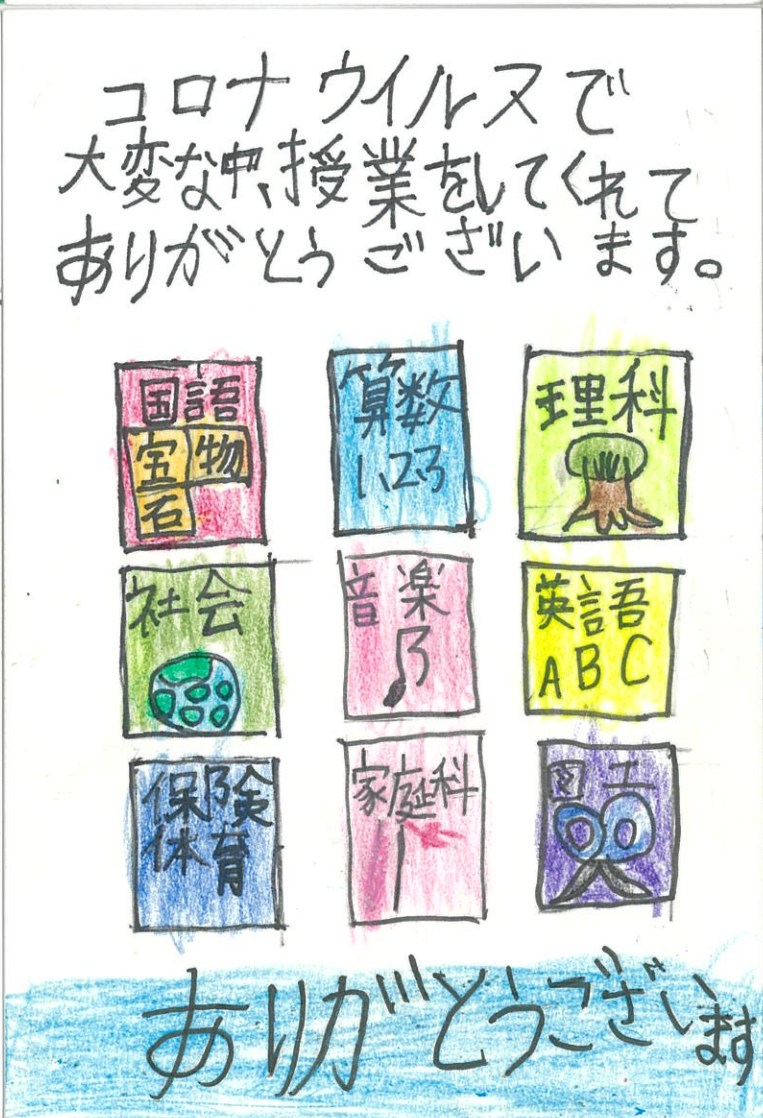 コロナウイルスで
大変な中、授業をしてくれて
ありがとうございます。
国語
宝物
石
算数
123
理科
社会
音楽
英語
ABC
保険
体育
家庭科
図工
ありがとうございます